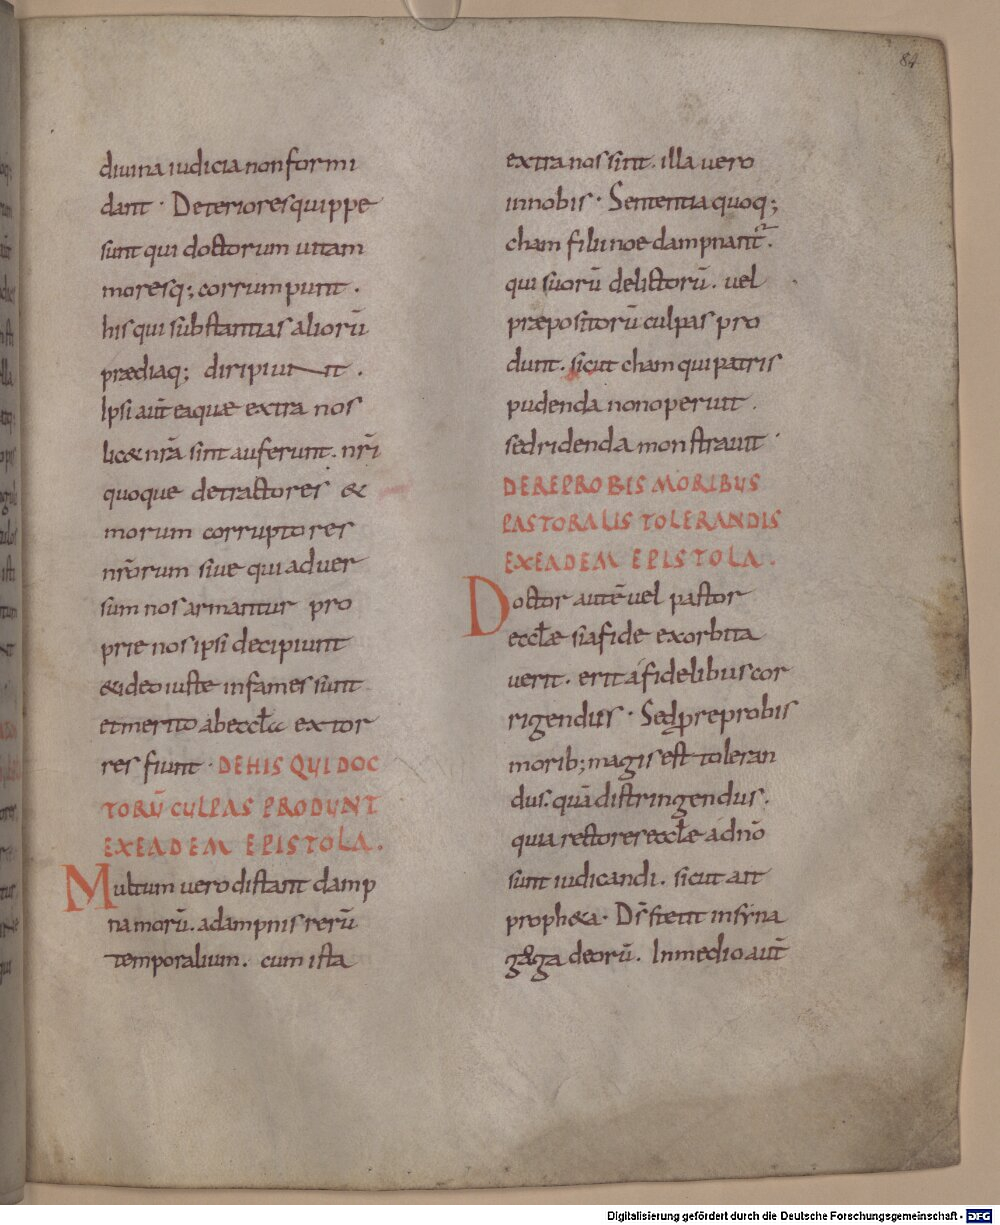 84
divina iudicia non formi
dant · Deteriores quippe
sunt qui doctorum uitam
moresq; corrumpunt ·
his qui substantias aliorū
prædiaq; diripiunt ·
Ipsi aut̄ ea quæ extra nos
lic& nr̄a sint auferunt. nr̄i
quoque detractores &
morum corruptores
nr̄orum siue qui aduer
sum nos armantur pro
prie nos ipsi decipiunt
& ideo iuste infames sunt
et merito ab eccl̄a extor
res fiunt · DE HIS QUI DOC
TORŪ CULPAS PRODUNT
EX EADEM EPISTOLA.
Multum uero distant damp
na morū. a dampnis rerū
temporalium. cum ista
extra nos sint. illa uero
in nobis · Sententia quoq;
cham filii noe dampnant᷑.
qui suorū delictorū. uel
præpositorū culpas pro
dunt. sicut cham qui patris
pudenda non operuit.
sed ridenda monstrauit ·
DE REPROBIS MORIBUS
PASTORALIS TOLERANDIS
EX EADEM EPISTOLA.
Doctor autē uel pastor
eccl̄æ si a fide exorbita
uerit. erit á fidelibus cor
rigendus · Sed ꝓ reprobis
morib; magis est toleran
dus. quā distringendus.
quia rectores eccl̄æ á dn̄o
sunt iudicandi. sicut ait
proph&a · Ds̄ stetit in syna
goga deorū. In medio aut̄
Digitalisierung gefördert durch die Deutsche Forschungsgemeinschaft - DFG